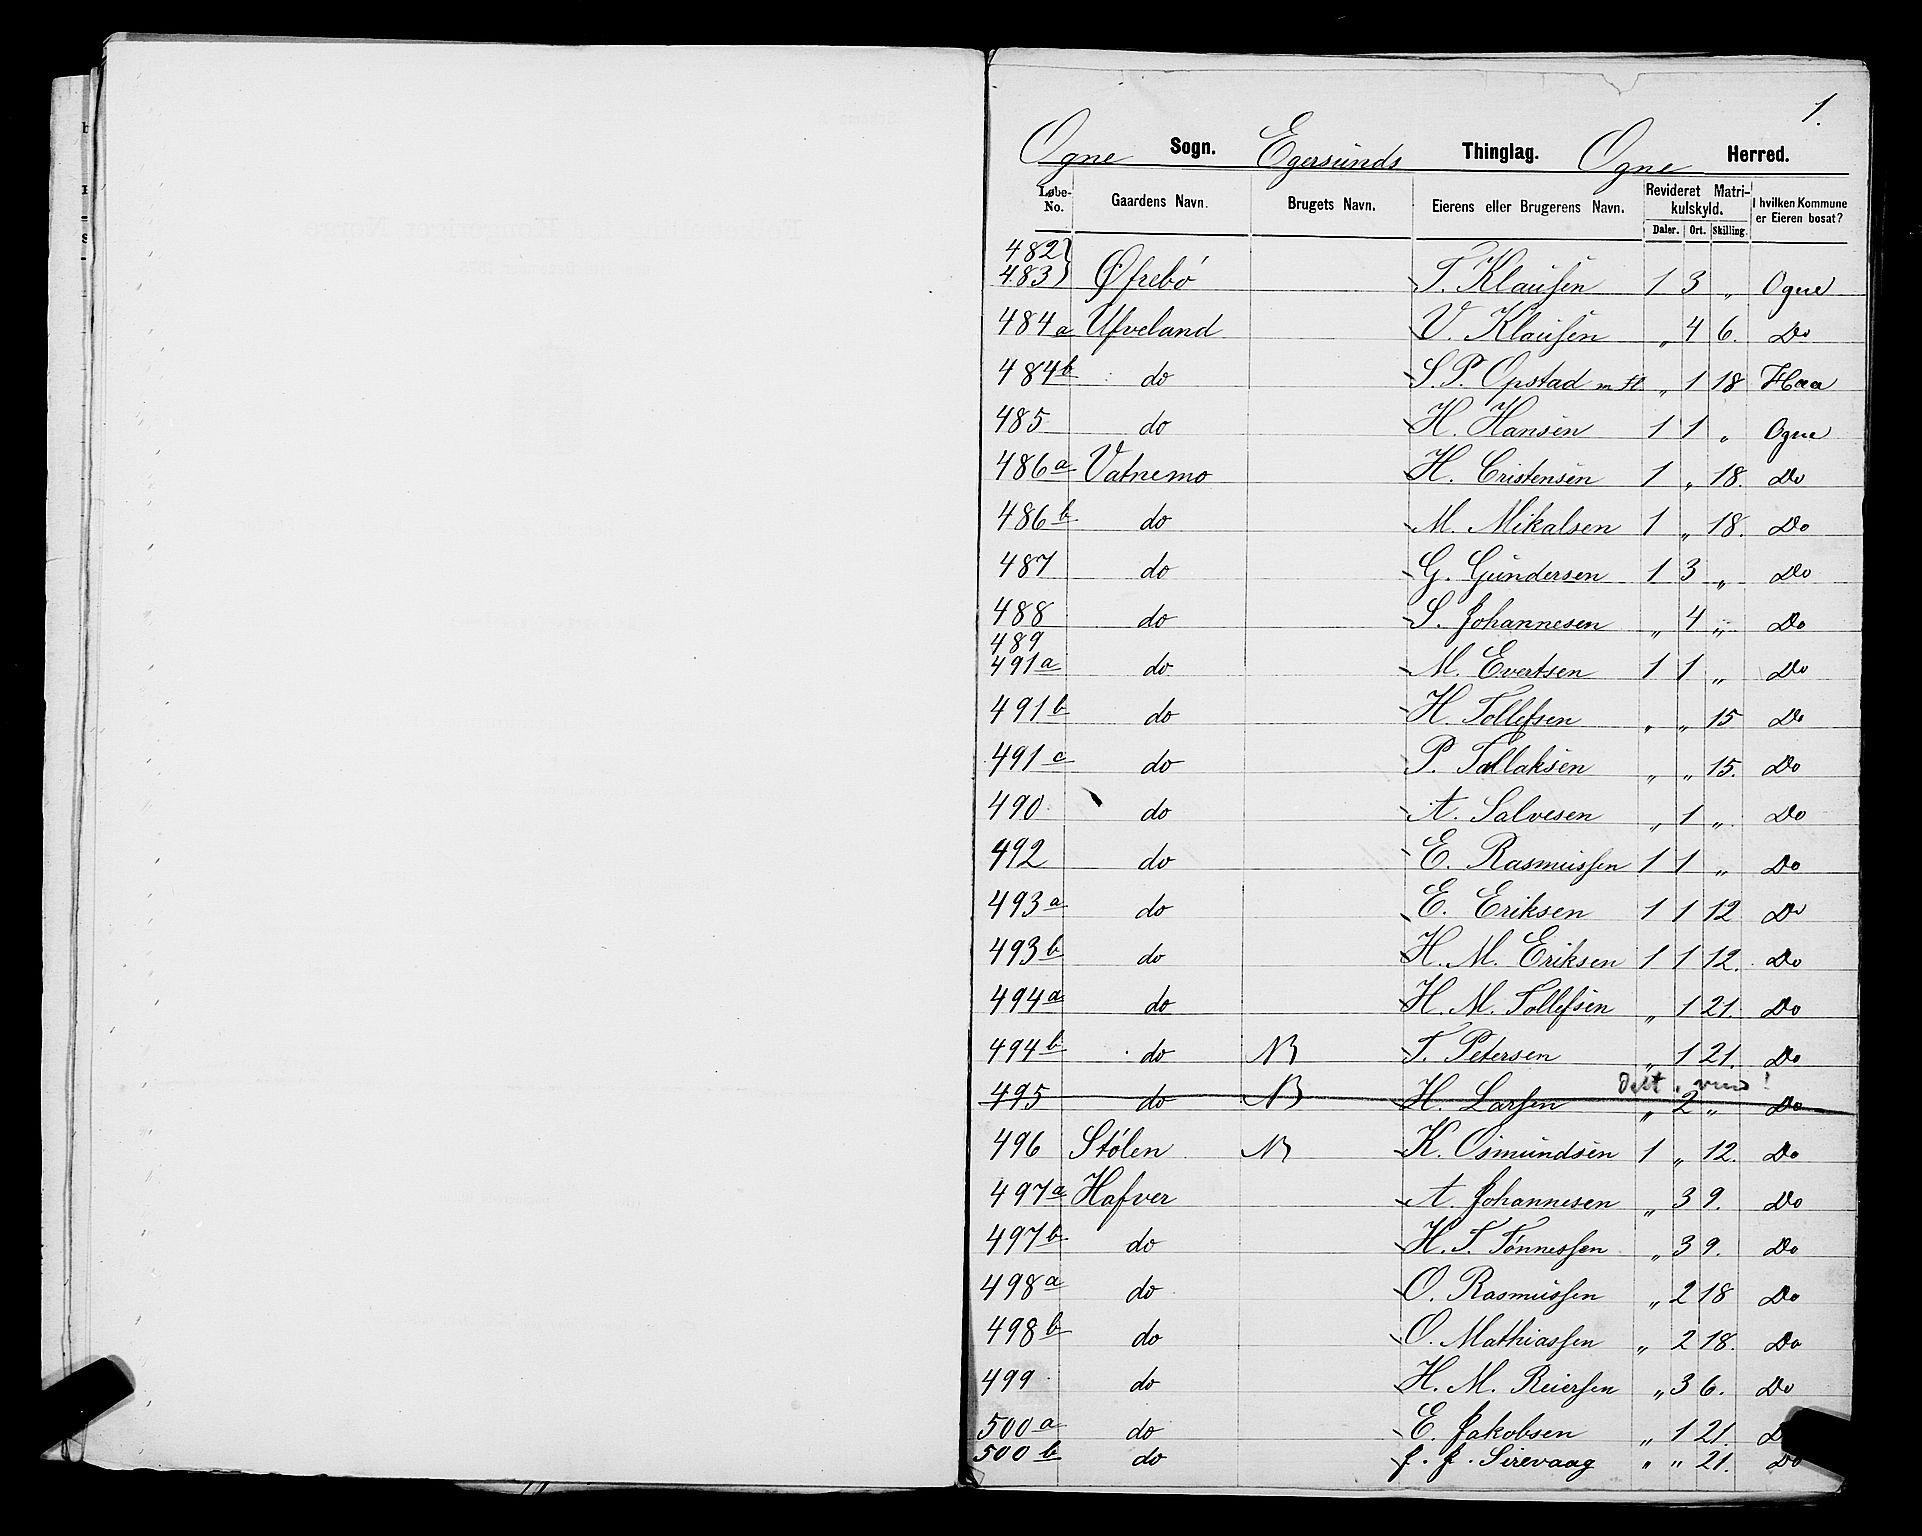 1.
Ogne Sogn. Egersunds Thinglag. Ogne Herred.
Løbe-No. Gaardens Navn. Brugets Navn. Eierens eller Brugerens Navn. Revideret Matrikulskyld. I hvilken Kommune er Eieren bosat?
Daler. Ort. Skilling.
482
483 Øfrebø T. Klausen 1 3 „ Ogne
484a Ufveland V. Klausen „ 4 6. Do
484b do S. P. Opstad m fl. „ 1 18 Haa
485 do H. Hansen 1 1 „ Ogne
486a Vatnemo H. Cristensen 1 „ 18. Do
486b do M. Mikalsen 1 „ 18. Do
487 do G. Gundersen 1 3 „ Do
488 do S. Johannesen „ 4 „ Do
489
491a do M. Evertsen 1 1 „ Do
491b do H. Tollefsen „ „ 15 Do
491c do P. Tallaksen „ „ 15. Do
490 do A. Salvesen „ 1 „ Do
492 do E. Rasmussen 1 1 „ Do
493a do E. Eriksen 1 1 12 Do
493b do H. M. Eriksen 1 1 12. Do
494a do H. M. Tollefsen „ 1 21. Do
494b do T. Petersen „ 1 21. Do
495 do H. Larsen „ 2 „ Do
496 Stølen K. Osmundsen 1 „ 12. Do
497a Hafver A. Johannesen „ 3 9. Do
497b do H. T. Tønnessen „ 3 9. Do
498a do O. Rasmussen „ 2 18 Do
498b do O. Mathiassen „ 2 18. Do
499 do H. M. Reiersen „ 3 6. Do
500a do E. Jakobsen „ 1 21.
500b do J. J. Sirevaag „ „ 21. Do